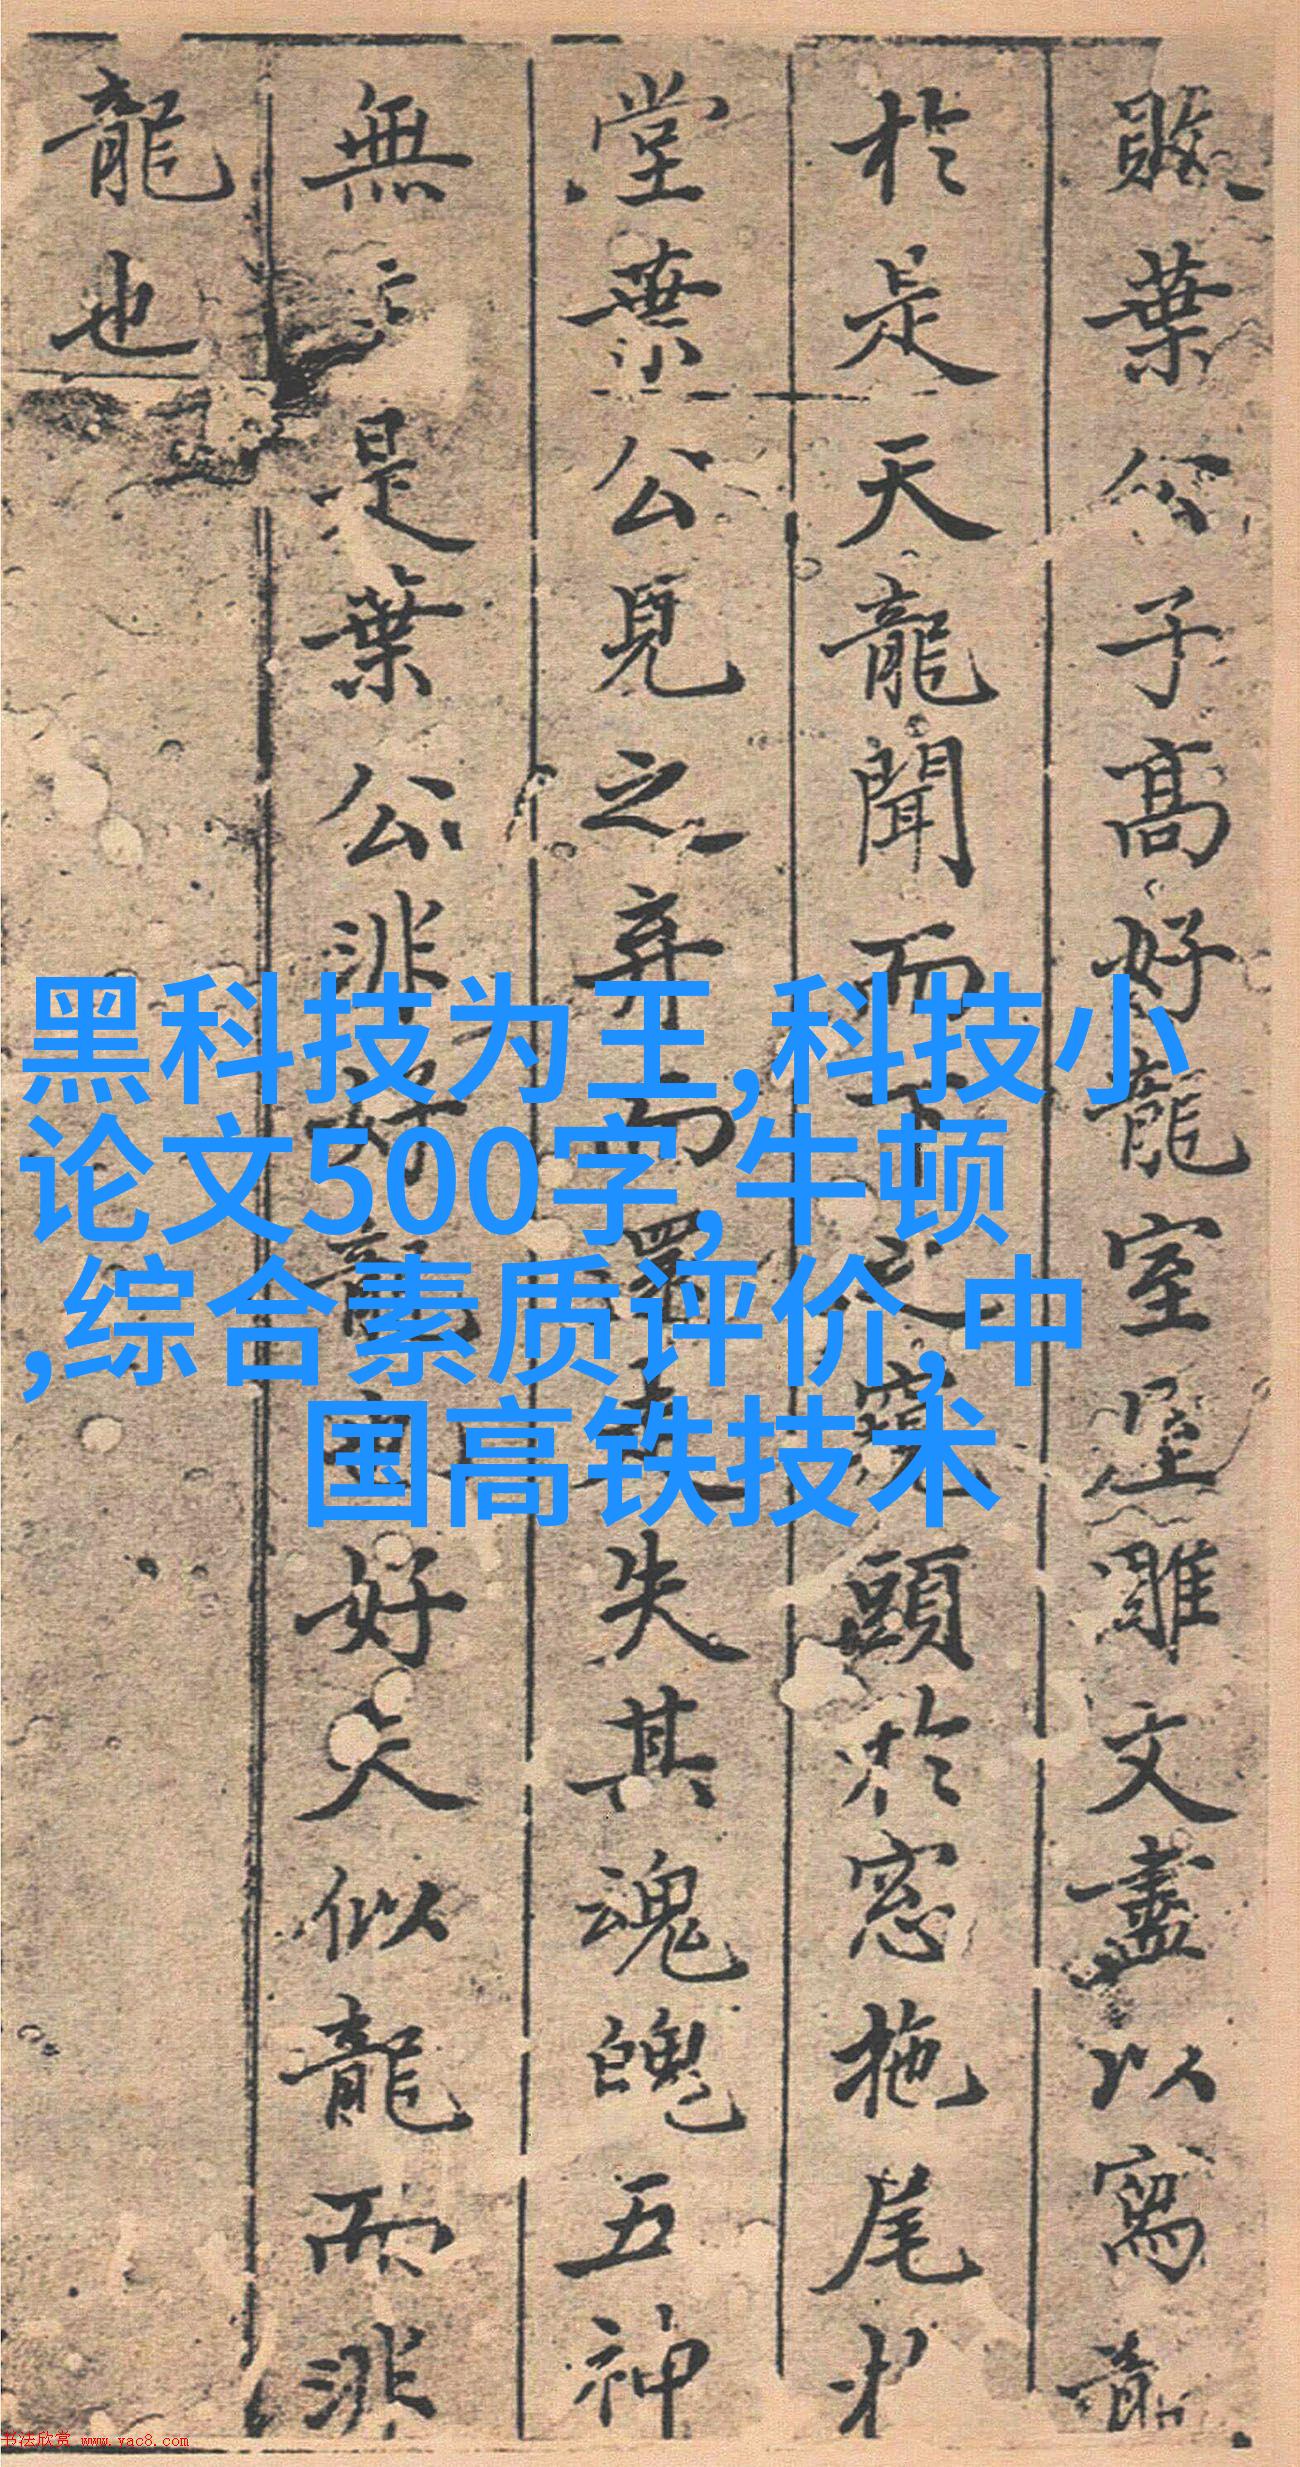 敗葉公子高好龍室屋雕文盡以寫龍
於是天龍聞而下之窺頭於窓拖尾於
堂葉公見之弃而還走失其魂魄五神
無主是葉公非好龍也好夫似龍而非
龍也
黑科技为王,科技小
论文500字, 牛顿
,综合素质评价,中
国高铁技术
书法欣赏 www.yac8.com